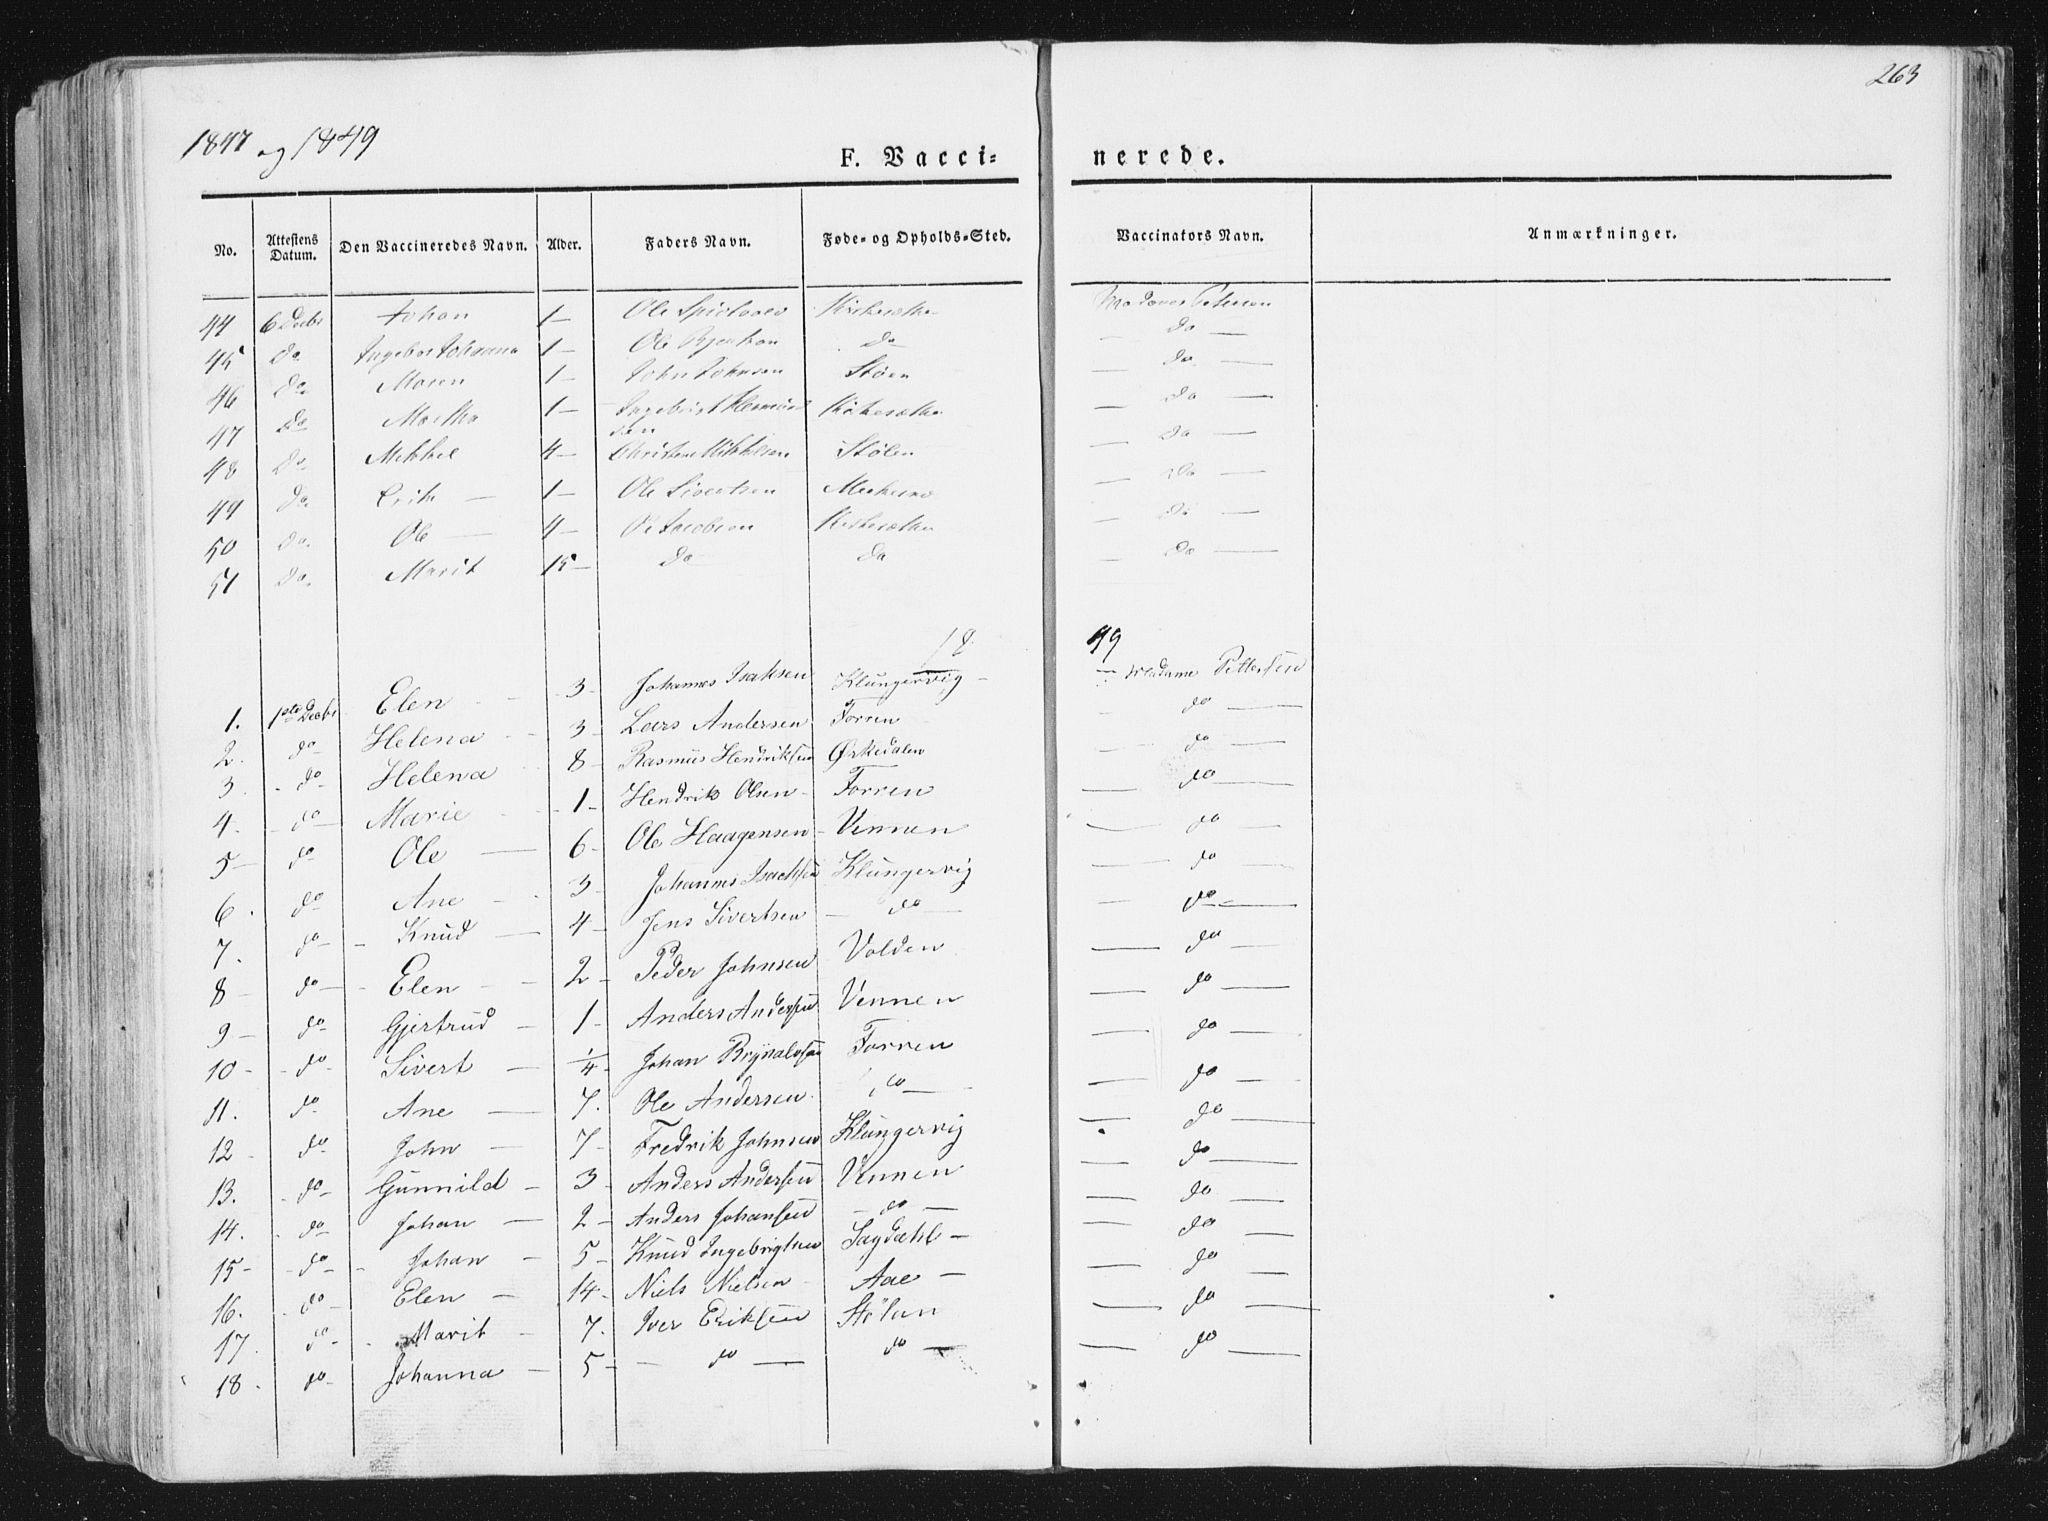 263
1847 og 1849
F. Vacci- nerede.
No. Attestens Datum. Den Vaccineredes Navn. Alder. Faders Navn. Føde- og Opholds-Sted. Vaccinators Navn. Anmærkninger.
44 6 Decbr Johan 1 — Ole Kirkesæther Madame Petersen
45 do Ingebor Johanna 1 — Ole do — do —
46 do Maren 1 — John Johnsen Støen — do —
47 do Martha 1 — Ingebrigt Kirkesæther — do —
48 do Mikkel 4 — Christen Mikkelsen Stølen — do —
49 do Erik — 1 — Ole Sivertsen — do —
50 do Ole — 4 — Ole Jacobsen Kirkesæther — do —
51 do Marit 15 — do do — do —
18 49
1. 1ste Decbr Elen 3 — Johannes Isaksen Klungervig — Madame Pettersen
2. do Helena 3 — Lars Andersen Forren — do —
3. do Helena 8 — Rasmus Hendriksen Ørkedalen — do —
4. do Marie 1 — Hendrik Olsen Forren — do —
5 — do Ole — 6 — Ole Haagensen Vennen — do —
6. do Ane 3 — Johannes Isachsen Klungervig — do —
7. do Knud — 4 — Jens Sivertsen — do — — do —
8 — do Elen — 2 — Peder Johnsen Volden — do —
9 — do Gjertrud — 1 — Anders Andersen Vennen — do —
10 — do Sivert — 1/4 — Johan Brynalvsen Forren — do —
11. do Ane — 7. Ole Andersen do — — do —
12 — do John — 7 — Fredrik Johnsen Klungervig — do —
13. do Gunnild — 3 — Anders Andersen Vennen — do —
14. do Johan — 2 — Anders Johansen — do — — do —
15 — do Johan — 5 — Knud Ingebrigtsen Sagdahl — — do —
16. do Elen — 14 — Niels Nielsen Aae — — do —
17. do Marit — 7. Iver Eriksen Stölan — do —
18. do Johanna — 5 — — do — do — — do —